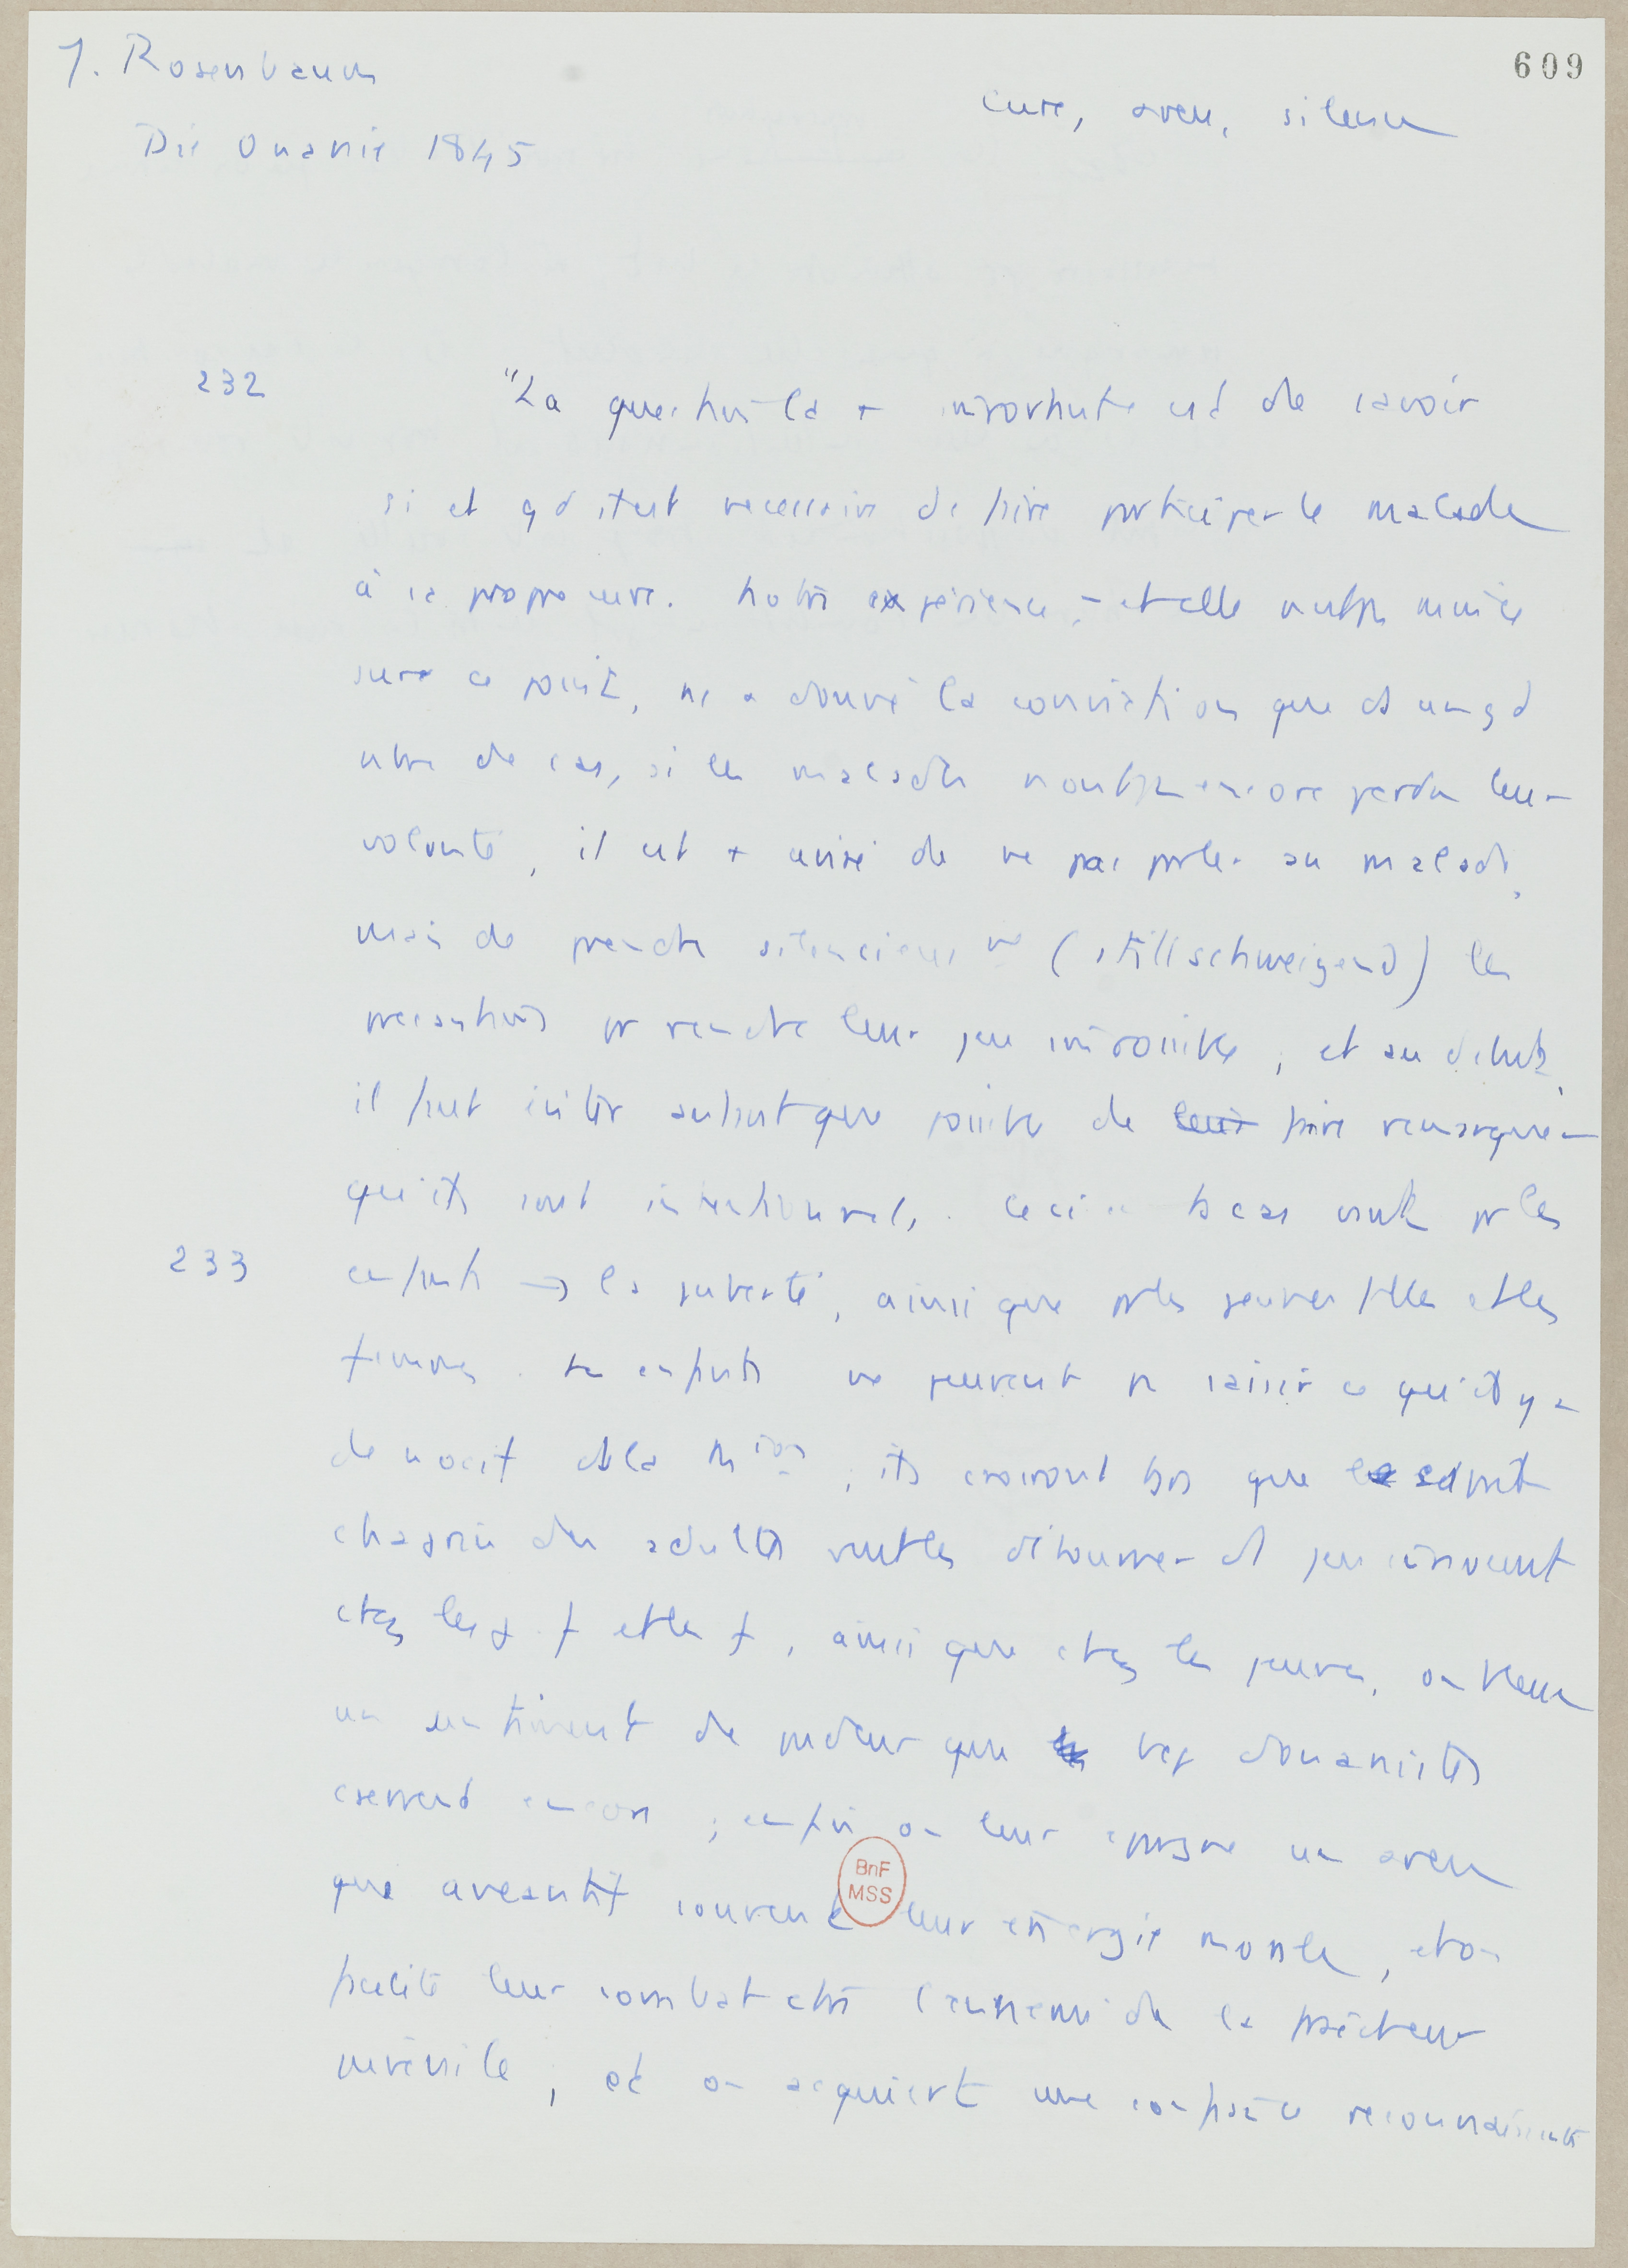 J. Rosenbaum
609
cure, aveu, silence
Die Onanie 1845
232 "La question la + importante est de savoir
si et qd il est necessaire de faire participer le malade
à sa propre cure. Notre expérience, - et elle n'est pas
sur ce point, ns a donné la conviction que ds un gd
nbre de cas, si les malades n'ont pas encore perdu leur
volonté, il est + avisé de ne pas parler au malade,
mais de prendre silencieusement (stillschweigend) les
precautions pr rendre leur jeu impossible, et au début,
il faut éviter autant que possible de leur faire remarquer
qu'ils sont intentionnels. Ceci pr les
233 enfants → la puberté, ainsi que pr les jeunes filles et les
femmes. Les enfants ne peuvent pas saisir ce qu'il y a
de nocif ds la mion, ils croiront que
chagrin des adultes veut les détourner d'1 jeu innocent
chez les j. f et les f, ainsi que chez les jeunes, on
un sentiment de pudeur que bcp d'onanistes
conservent encore ; enfin on leur épargne un aveu
que anéantit souvent leur énergie morale, et on
facilite leur combat ctre l'ennemi de la fraîcheur
juvénile, et on acquiert une confiance reconnaissante
BnF
MSS